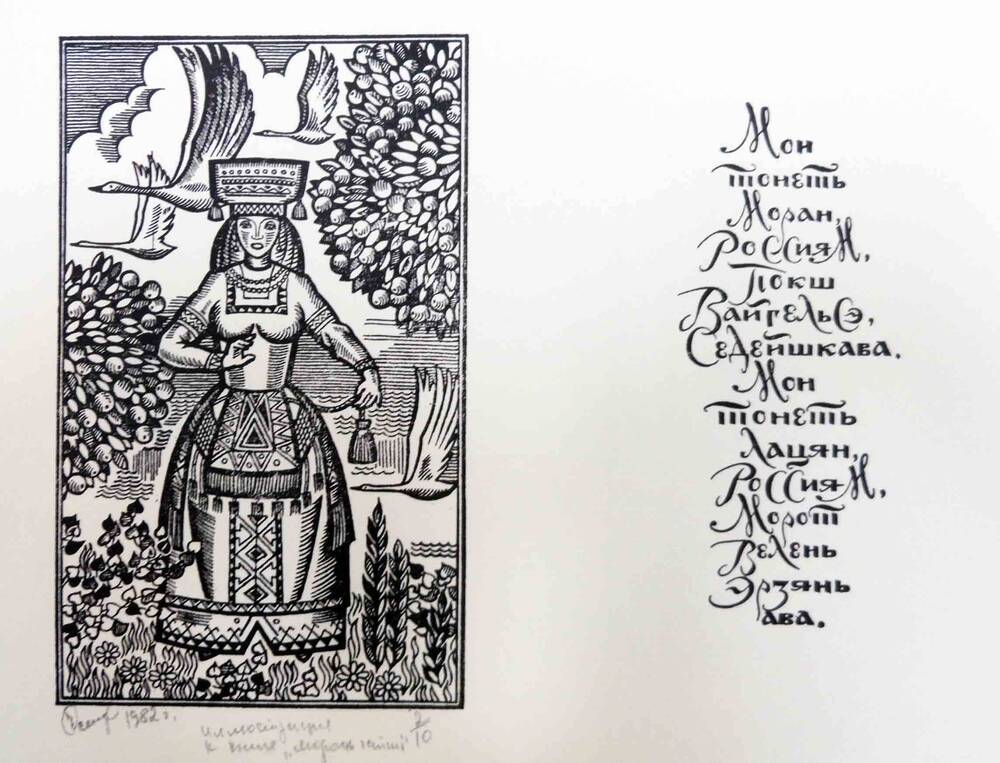 Мон
тонеть
Моран,
Россиям,
Покш
Вайгельсэ,
Седейшкава.
Мон
тонеть
Лацян,
Россиям,
Морот
Велень
Эрзянь
ава.
1982 г.
иллюстрация 2/10
к книге